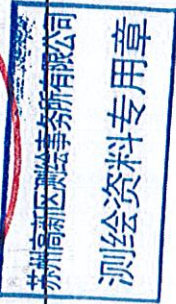 苏州高新区测绘事务所有限公司
测绘资料专用章